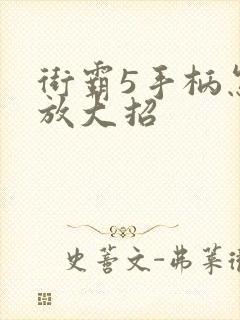 街霸5手柄怎
放大招
史莟文-弗莱街